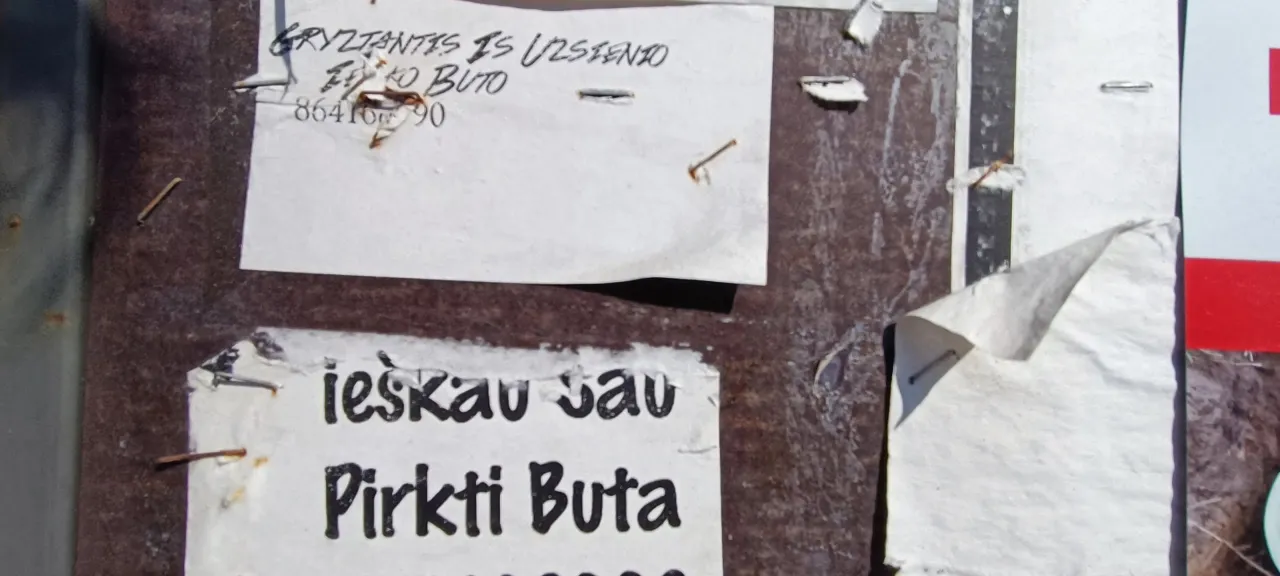 GRYZTANTIS IS UZSIENIO
BUTO
90
ieškau Sau
Pirkti Buta